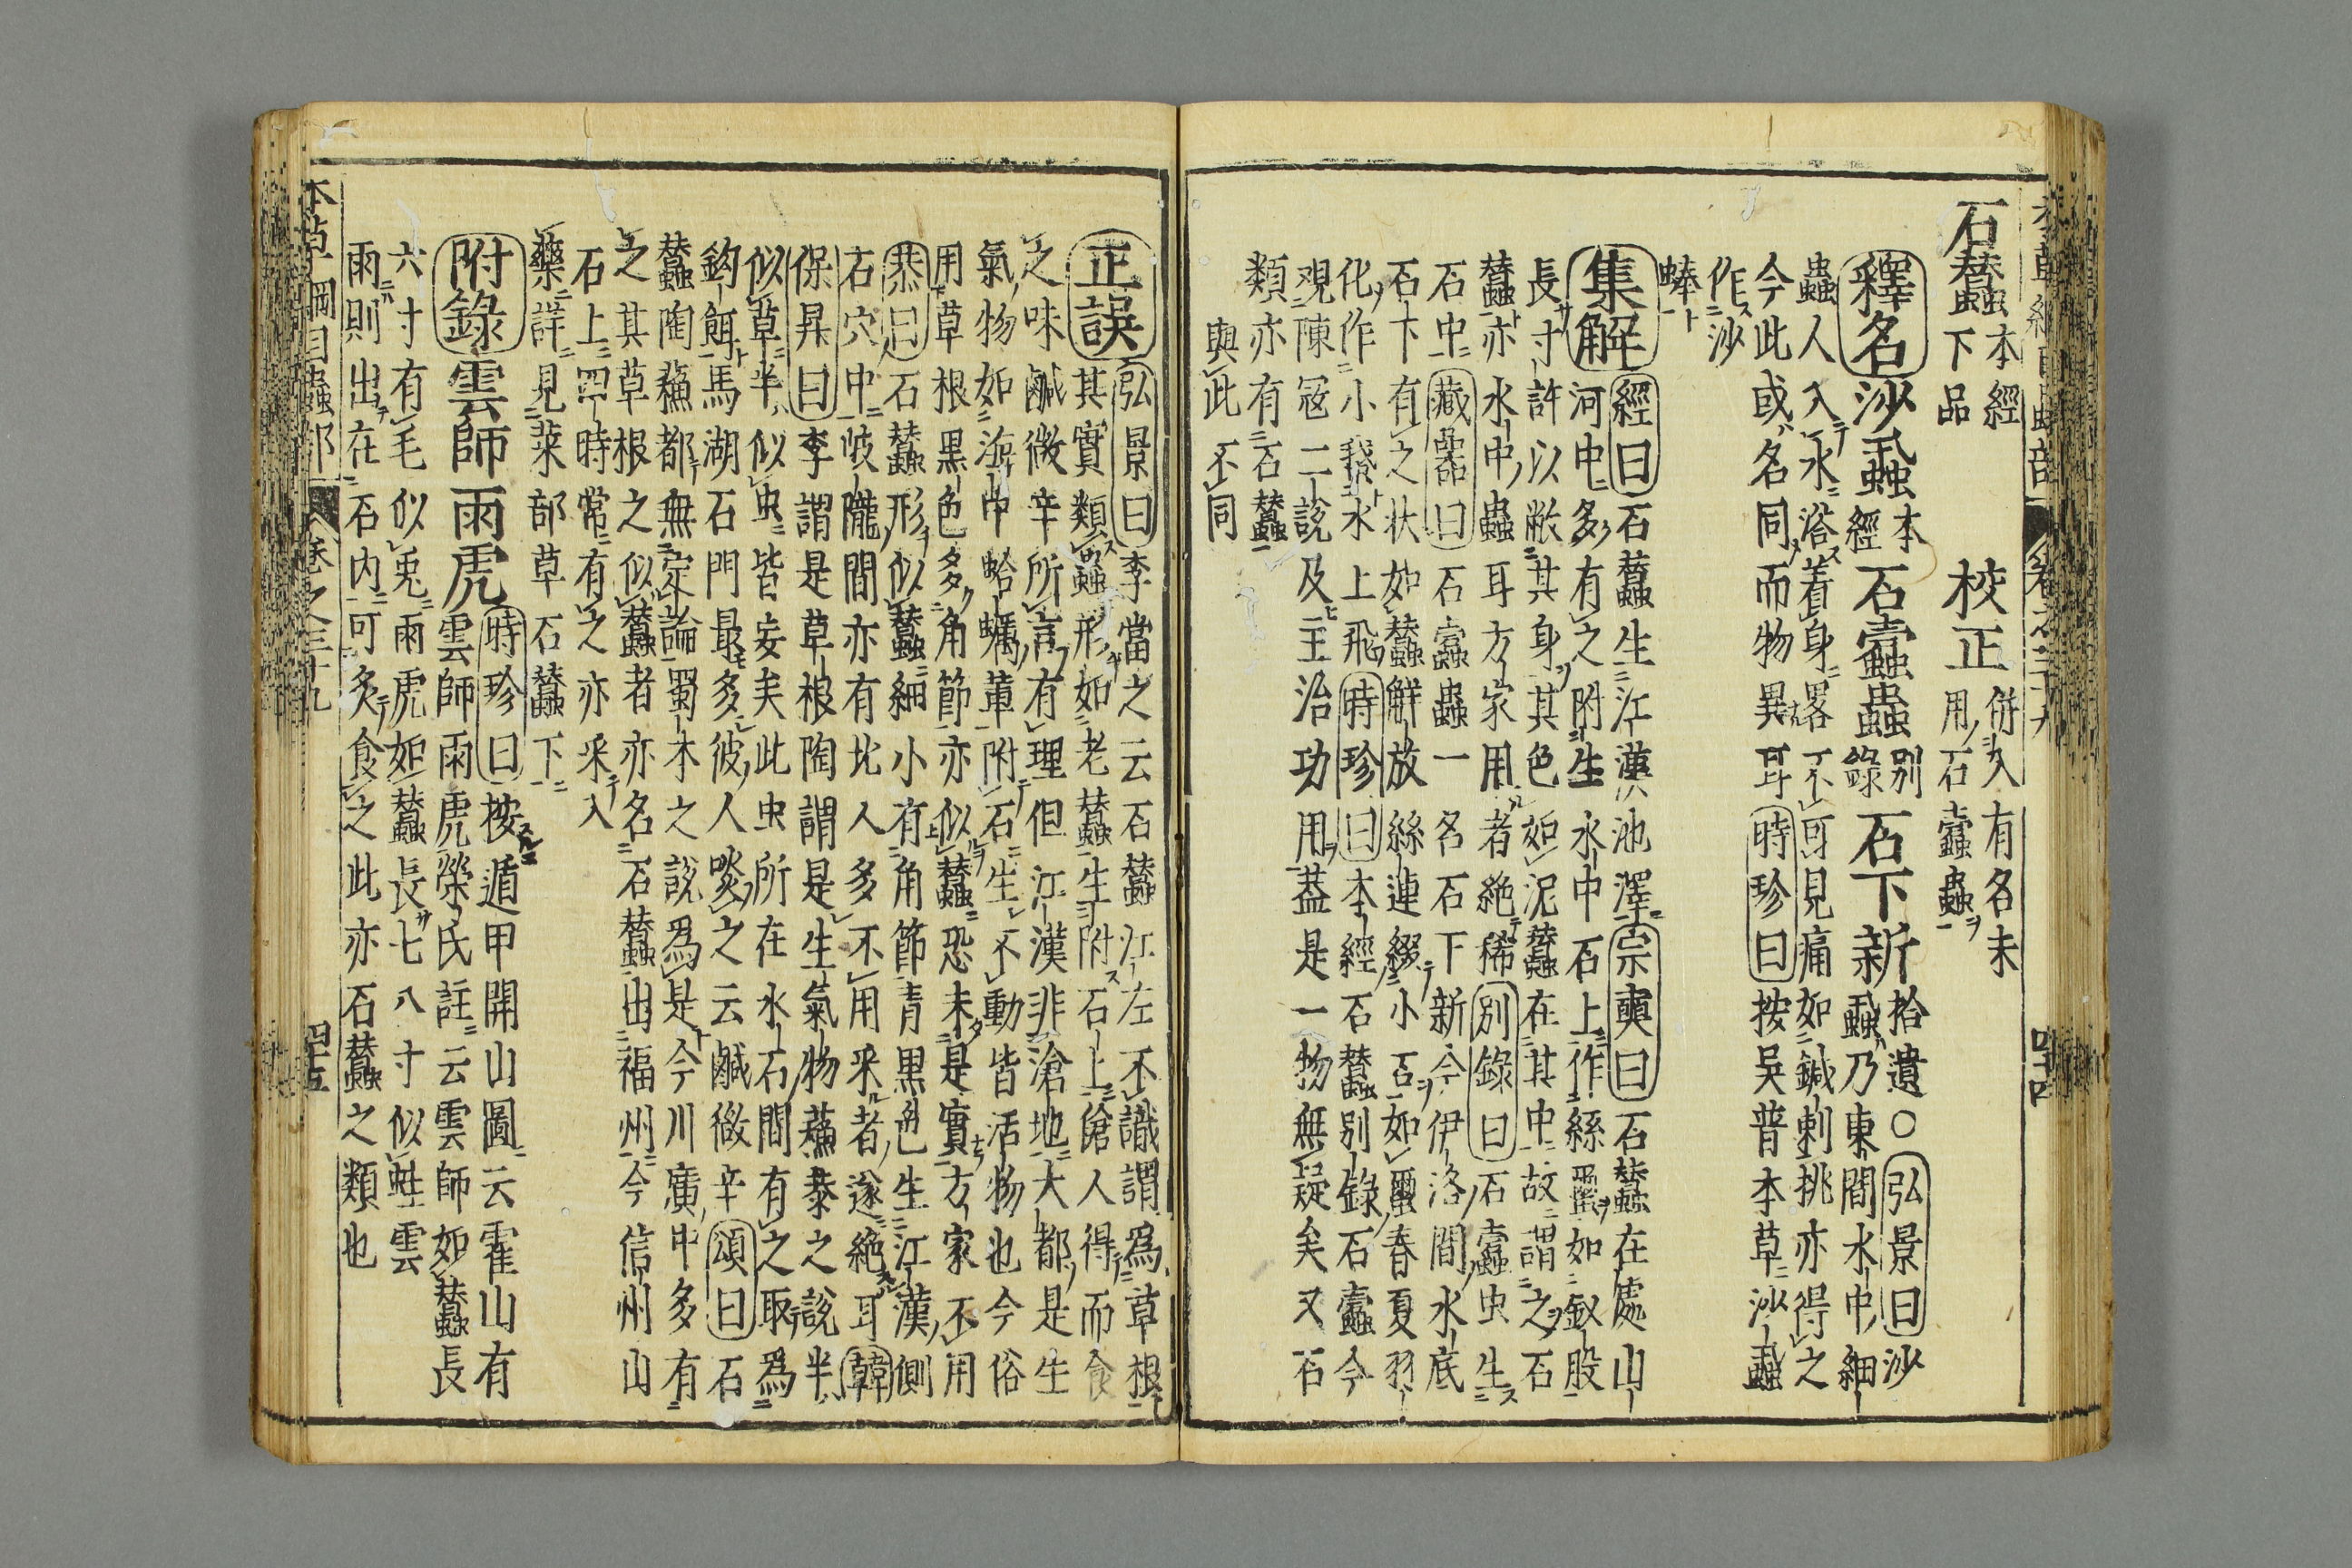 本草綱目蟲部 卷之三十九 四十四
石蠶 本經下品 校正 併入有名未用石蠹蟲
釋名 沙虱本經 石蠹蟲別錄 石下新拾遺○弘景曰沙
虱乃東間水中細
蟲人入水浴着身畧不可見痛如鍼刺挑亦得之
今此或名同而物異耳時珍曰按吳普本草沙虱
作沙
蜯
集解 經曰石蠶生江漢池澤宗奭曰石蠶在處山
河中多有之附生水中石上作絲繭如釵股
長寸許以蔽其身其色如泥蠶在其中故謂之石
蠶亦水中蟲耳方家用者絶稀別錄曰石蠹虫生
石中藏器曰石蠹蟲一名石下新今伊洛間水底
石下有之状如蠶解放絲連綴小石如春夏羽
化作小蛾水上飛時珍曰本經石蠶別錄石蠹今
观陳冦二說及主治功用蓋是一物無疑矣又石
類亦有石蠶
與此不同
正誤 弘景曰李當之云石蠶江左不識謂爲草根
其實類蟲形如老蠶生附石上傖人得而食
之味鹹微辛所言有理但江漢非滄地大都是生
氣物如海中蛤蠣輩附石生不動皆活物也今俗
用草根黒色多角節亦似蠶恐未是實方家不用
恭曰石蠶形似蠶細小有角節青黒色生江漢側
石穴中岐隴間亦有北人多不用采者遂絶耳韓
保昇曰李謂是草根陶謂是生氣物蘓恭之說半
似草半似虫皆妄矣此虫所在水石間有之取爲
鈎餌馬湖石門最多彼人啖之云鹹微辛頌曰石
蠶陶蘓都無定論蜀本之說爲是今川廣中多有
之其草根之似蠶者亦名石蠶出福州今信州山
石上四時常有之亦采入
藥詳見菜部草石蠶下
附錄 雲師雨虎 時珍曰按遁甲開山圖云霍山有
雲師雨虎榮氏註云雲師如蠶長
六寸有毛似兎雨虎如蠶長七八寸似蛭雲
雨則出在石内可炙食之此亦石蠶之類也
本草綱目蟲部 卷之三十九 四十五